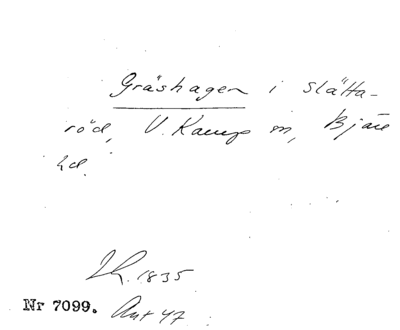 Gräshagen i slätta-
röd, V. Karup sn, Bjäre
hd.
Lh. 1835
Nr 7099. Ant 47